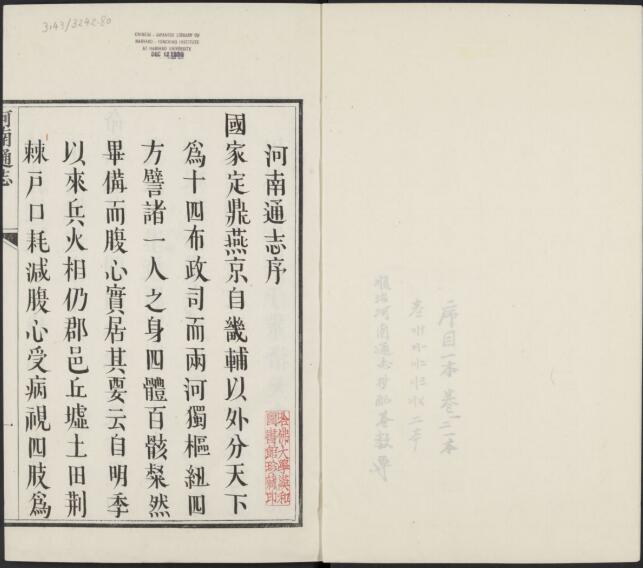 序目一本 卷二一本
順治河南通志
3143/3242.80
CHINESE - JAPANESE LIBRARY OF
HARVARD - YENCHING INSTITUTE
AT HARVARD UNIVERSITY
DEC 12 1939
河南通志序
國家定鼎燕京自畿輔以外分天下
爲十四布政司而兩河獨樞紐四
方譬諸一人之身四體百骸粲然
畢備而腹心實居其要云自明季
以來兵火相仍郡邑丘墟土田荆
棘戸口耗減腹心受病視四肢爲
哈佛大學漢和
圖書館珍藏印
河南通志
一